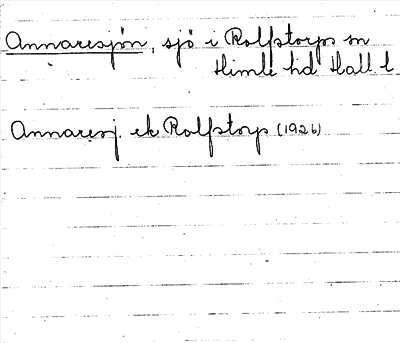 Annaresjön, sjö i Rolfstorps sn
Himle hd Hall. l.
Annaresj. ek Rolfstorp (1926)